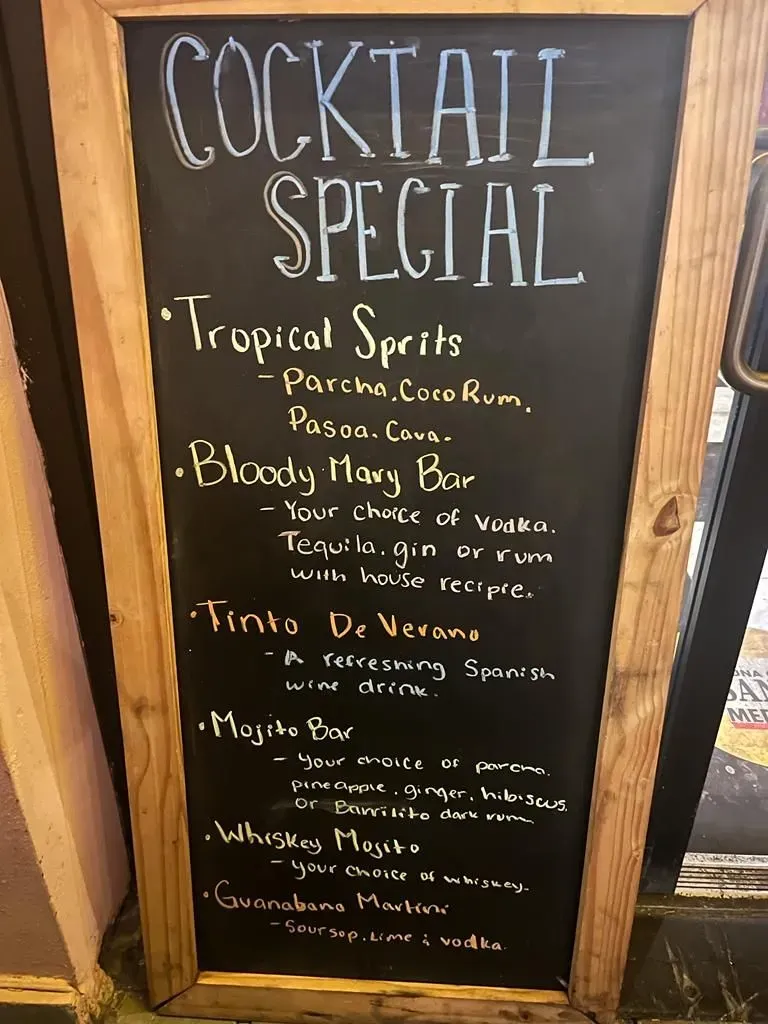 COCKTAIL
SPECIAL
•Tropical Sprits
- Parcha. Coco Rum.
Pasoa. Cava.
•Bloody Mary Bar
- Your choice of vodka.
Tequila. gin or rum
with house recipie.
•Tinto De Verano
- A refreshing Spanish
wine drink.
•Mojito Bar
- your choice of parcha.
pineapple. ginger. hibiscus.
or Barrilito dark rum
•Whiskey Mojito
- your choice of whiskey.
•Guanabana Martini
- Soursop. Lime & vodka.